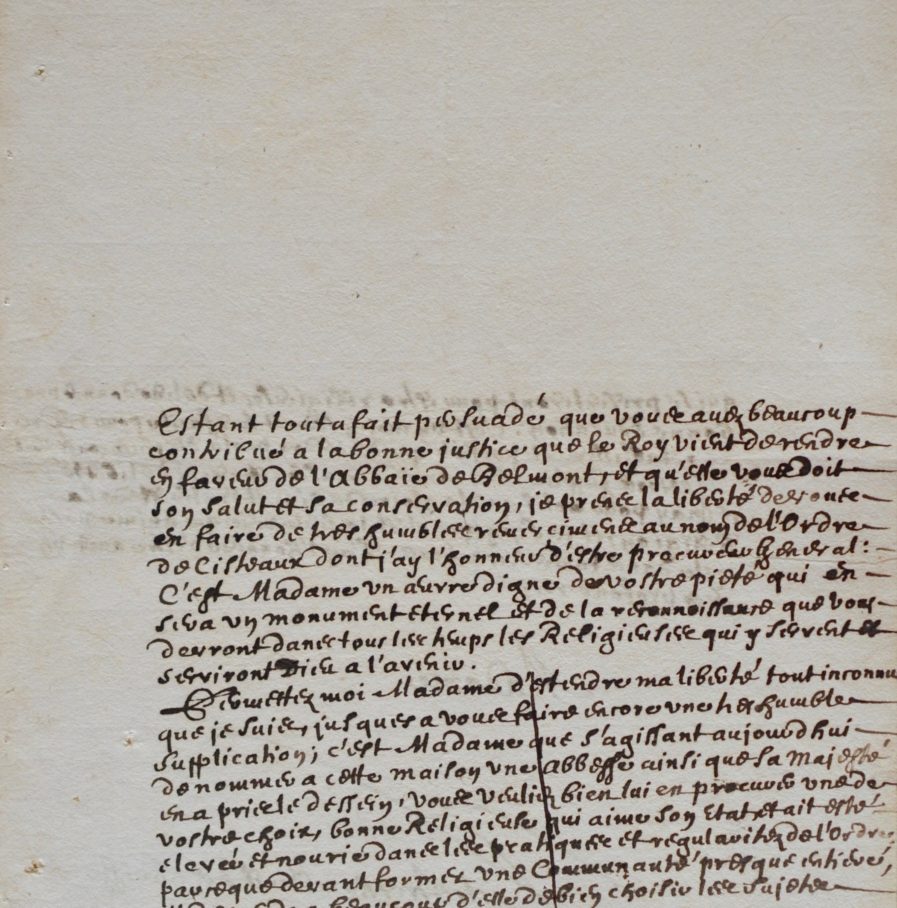 Estant tout a fait persuadé que vous avez beaucoup
contribué a la bonne justice que le Roy vient de rendre
en faveur de l'Abbaïe de Belmont, et qu'elle vous doit
son salut et sa conservation, je prens la liberté de vous
en faire de tres humbles remercimens au nom de l'Ordre
de Cisteaux dont j'ay l'honneur d'estre procureur general:
C'est Madame un œuvre digne de vostre pieté qui en
sera un monument eternel et de la reconnoissance que vous
devront dans tous les temps les Religieuses qui y servent et
serviront Dieu a l'avenir.
Permettez moi Madame d'estendre ma liberté tout inconnu
que je suis, jusques a vous faire encore une tres humble
supplication; c'est Madame que s'agissant aujourdhui
de nommer a cette maison une Abbesse ainsi que sa Majesté
en a pris le dessein, vous veuliez bien lui en procurer une de
vostre choix, bonne Religieuse qui aime son Etat et ait esté
elevée et nourie dans les pratiques et regularitez de l'Ordre,
parce que devant former une Communauté presque entiere,
beaucoup d'elle de bien choisir les sujets